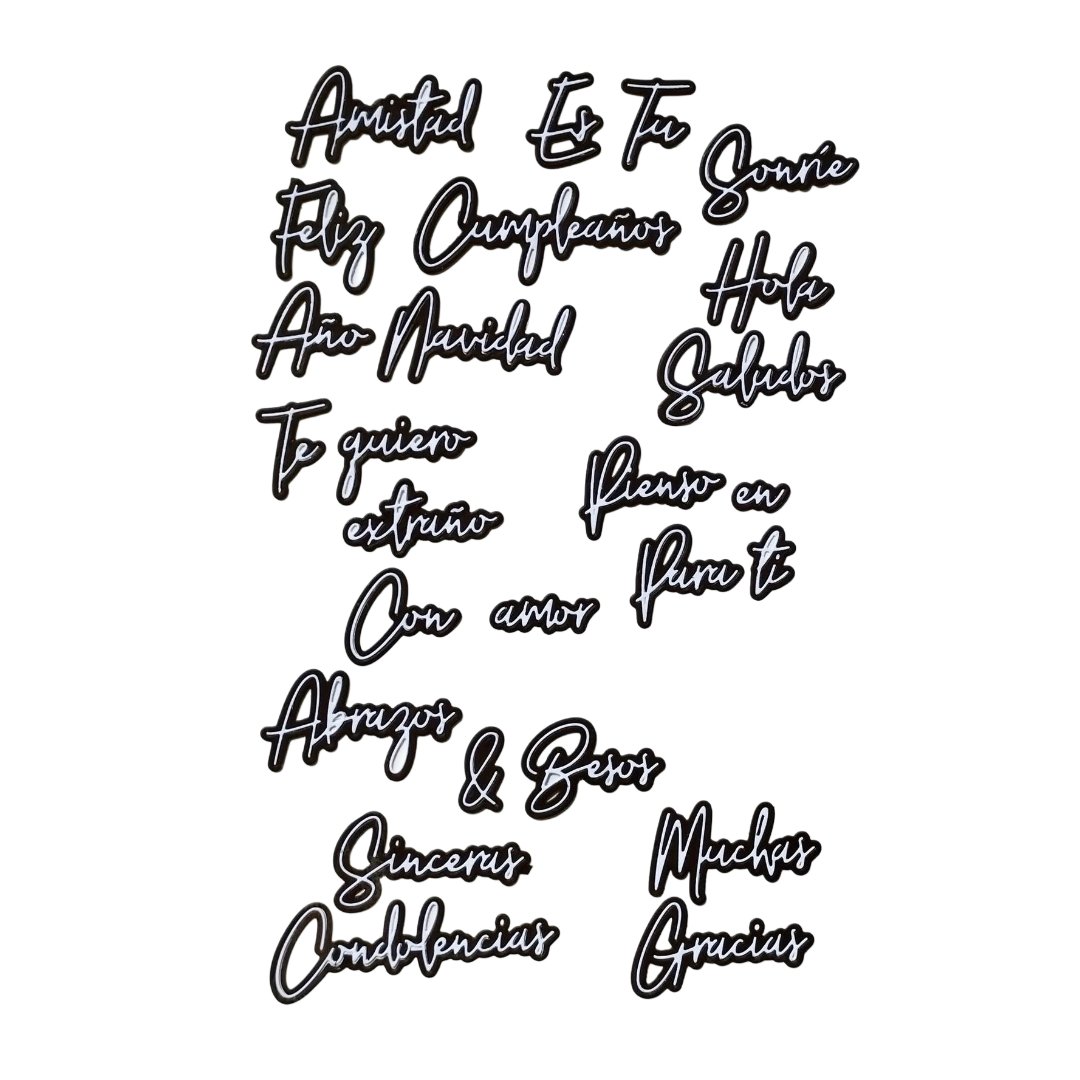 Amistad Es Tu
Sonríe
Feliz Cumpleaños
Hola
Año Navidad
Saludos
Te quiero
extraño
Pienso en
Para ti
Con amor
Abrazos
& Besos
Sinceras
Condolencias
Muchas
Gracias